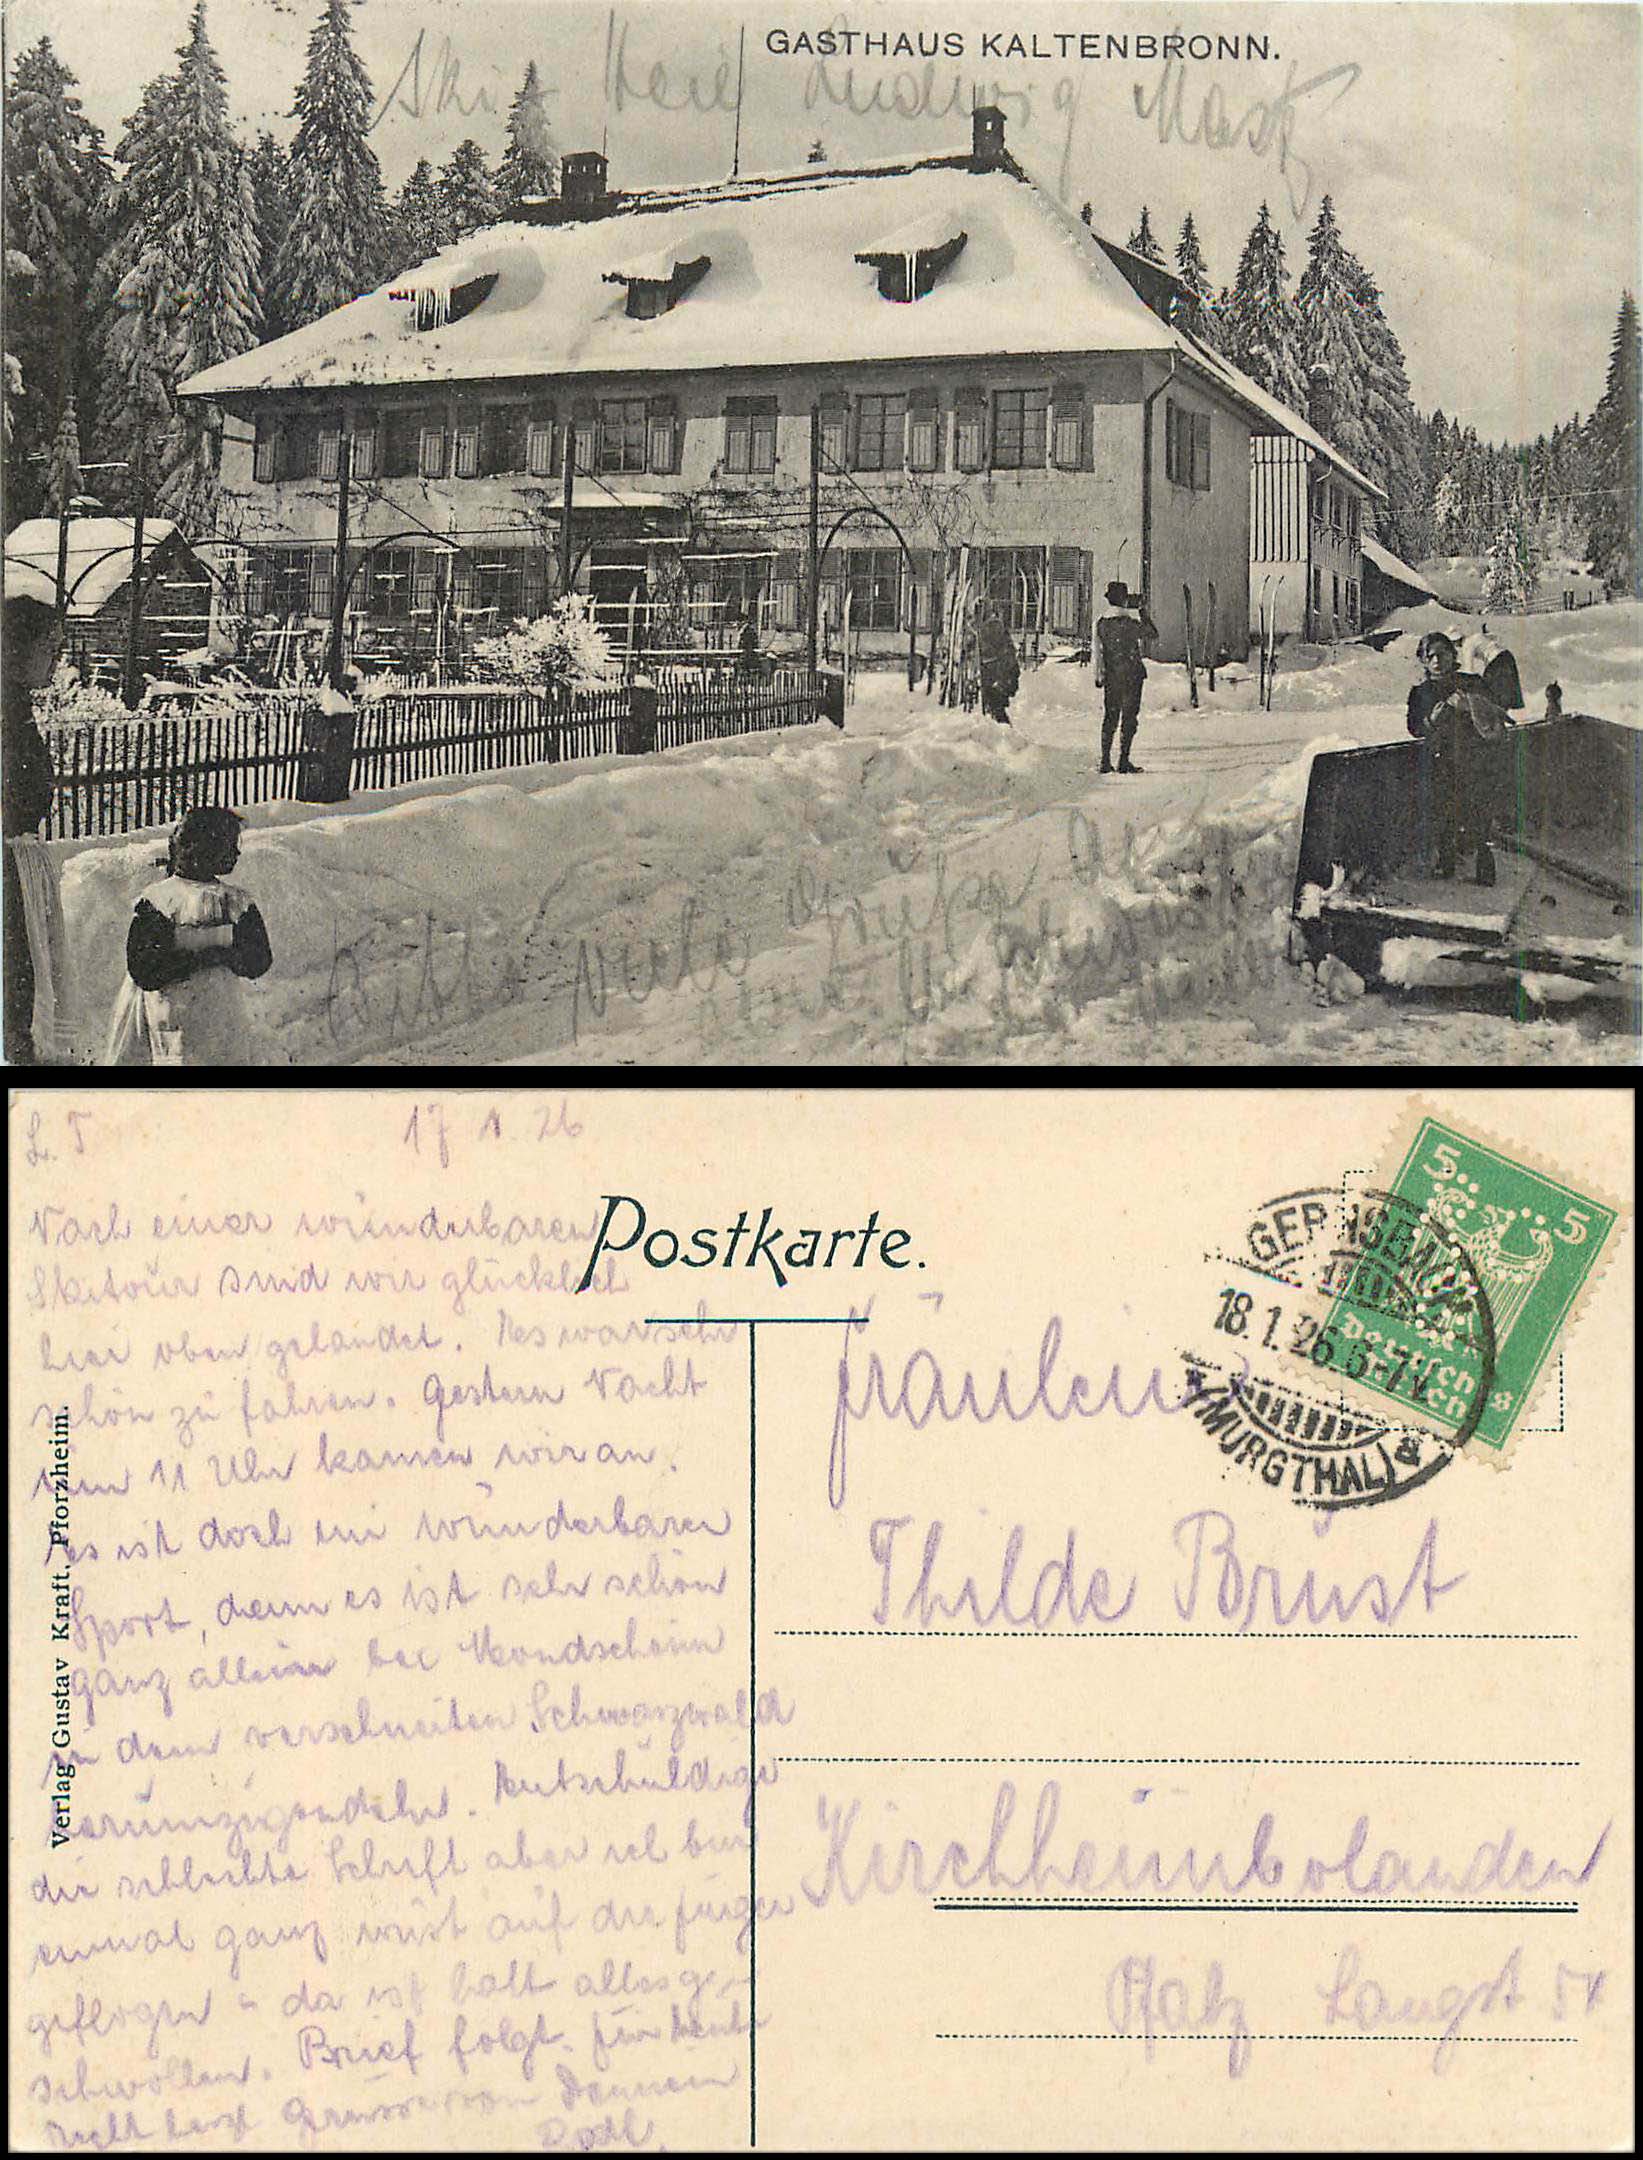 GASTHAUS KALTENBRONN.
Ski Heil Ludwig
viele Grüße
L. T 17 1. 26
Nach einer wunderbaren
Skitour sind wir glücklich
hier oben gelandet. Es war sehr
schön zu fahren. Gestern Nacht
um 11 Uhr kamen wir an.
Es ist doch ein wunderbarer
Sport, denn es ist sehr schön
ganz allein bei Mondschein
in dem verschneiten Schwarzwald
herumzigondeln. Entschuldige
die schlechte Schrift aber ich bin
einmal ganz wüst auf die Finger
geflogen u da ist halt alles ge-
schwollen. Brief folgt. Für heute
recht herzl Grüsse von Deinem
Verlag Gustav Kraft, Pforzheim.
Postkarte.
GERNSBACH
18.1.26 6-7N
(MURGTHAL) a
5 5
Deutsches
Reich
Fräulein
Thilde Brust
Kirchheimbolanden
Pfalz Langst 54